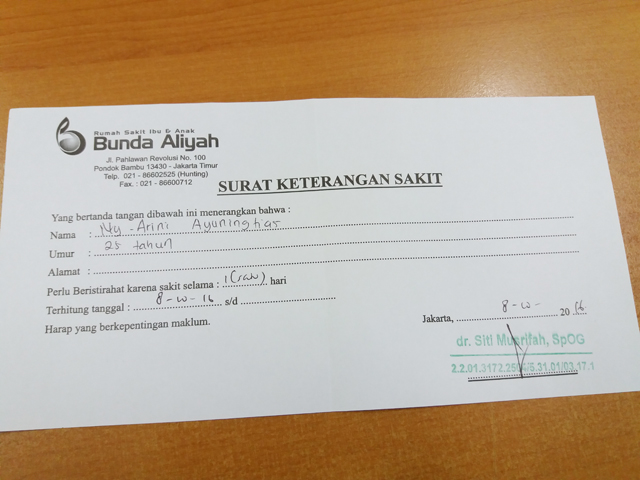 Rumah Sakit Ibu & Anak
Bunda Aliyah
Jl. Pahlawan Revolusi No. 100
Pondok Bambu 13430 - Jakarta Timur
Telp. 021 - 86602525 (Hunting)
Fax. : 021 - 86600712
SURAT KETERANGAN SAKIT
Yang bertanda tangan dibawah ini menerangkan bahwa :
Nama : Ny. Arini Ayuningtias
Umur : 25 tahun
Alamat :
Perlu Beristirahat karena sakit selama : 1 (satu) hari
Terhitung tanggal : 8-10-16 s/d
Harap yang berkepentingan maklum.
Jakarta, 8-10- 2016
dr. Siti Musrifah, SpOG